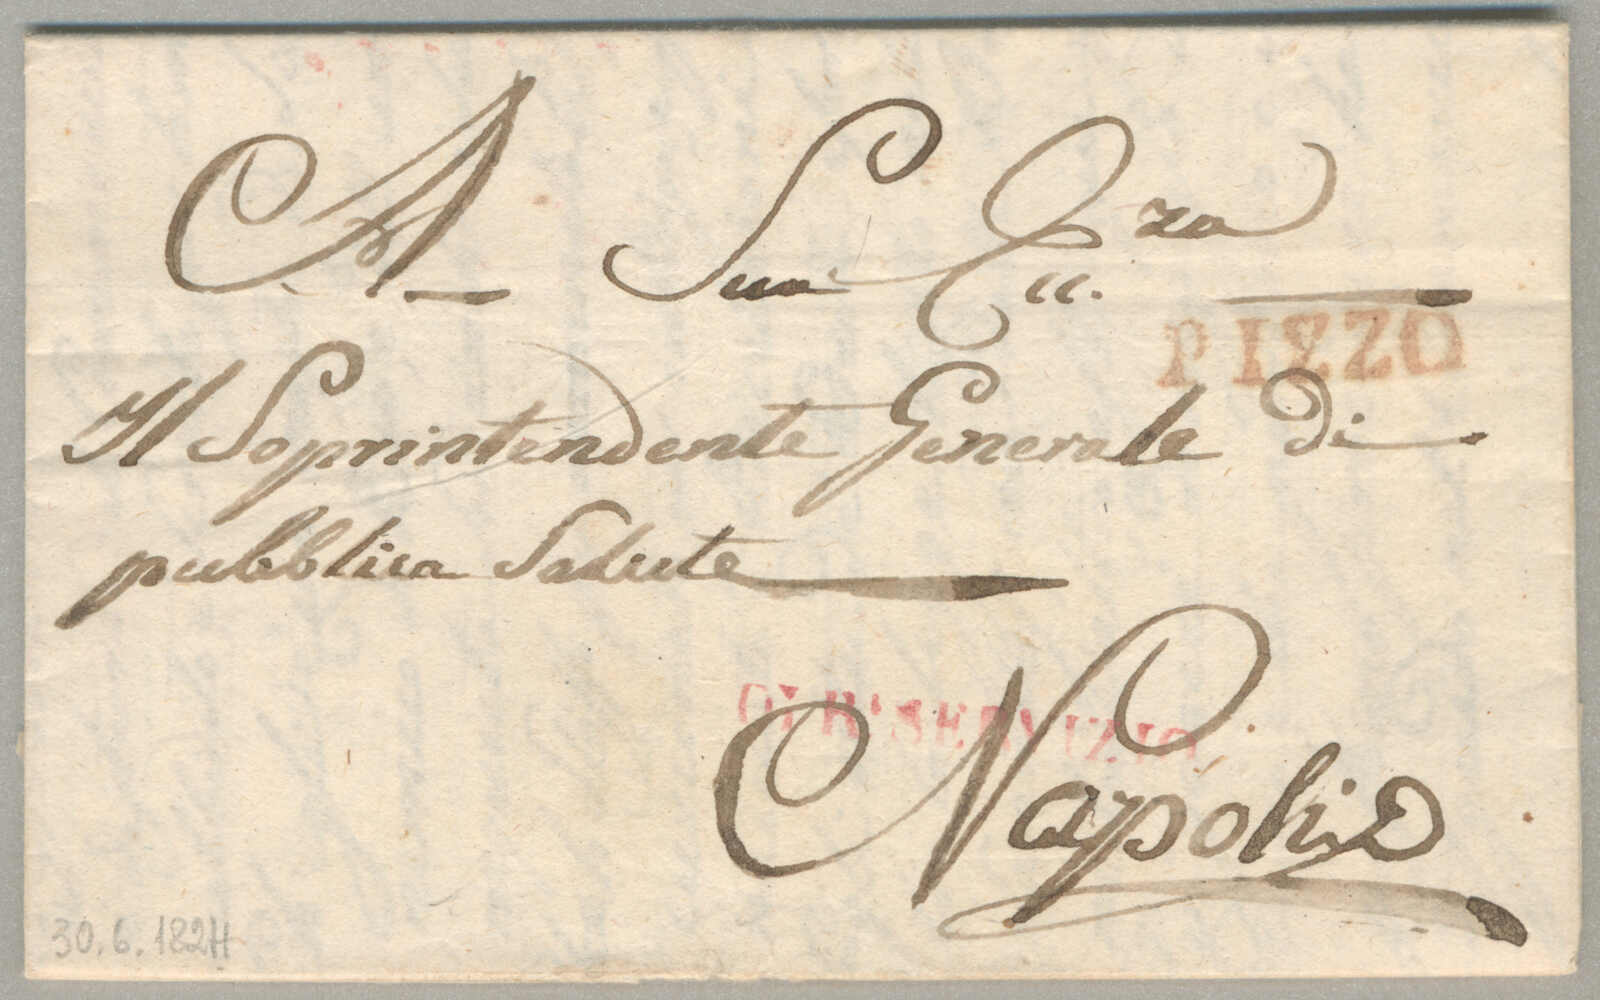 A Sua Ecc.za
PIZZO
Il Soprintendente Generale di
pubblica Salute
DI Rl SERVIZIO
Napoli
30.6.1824